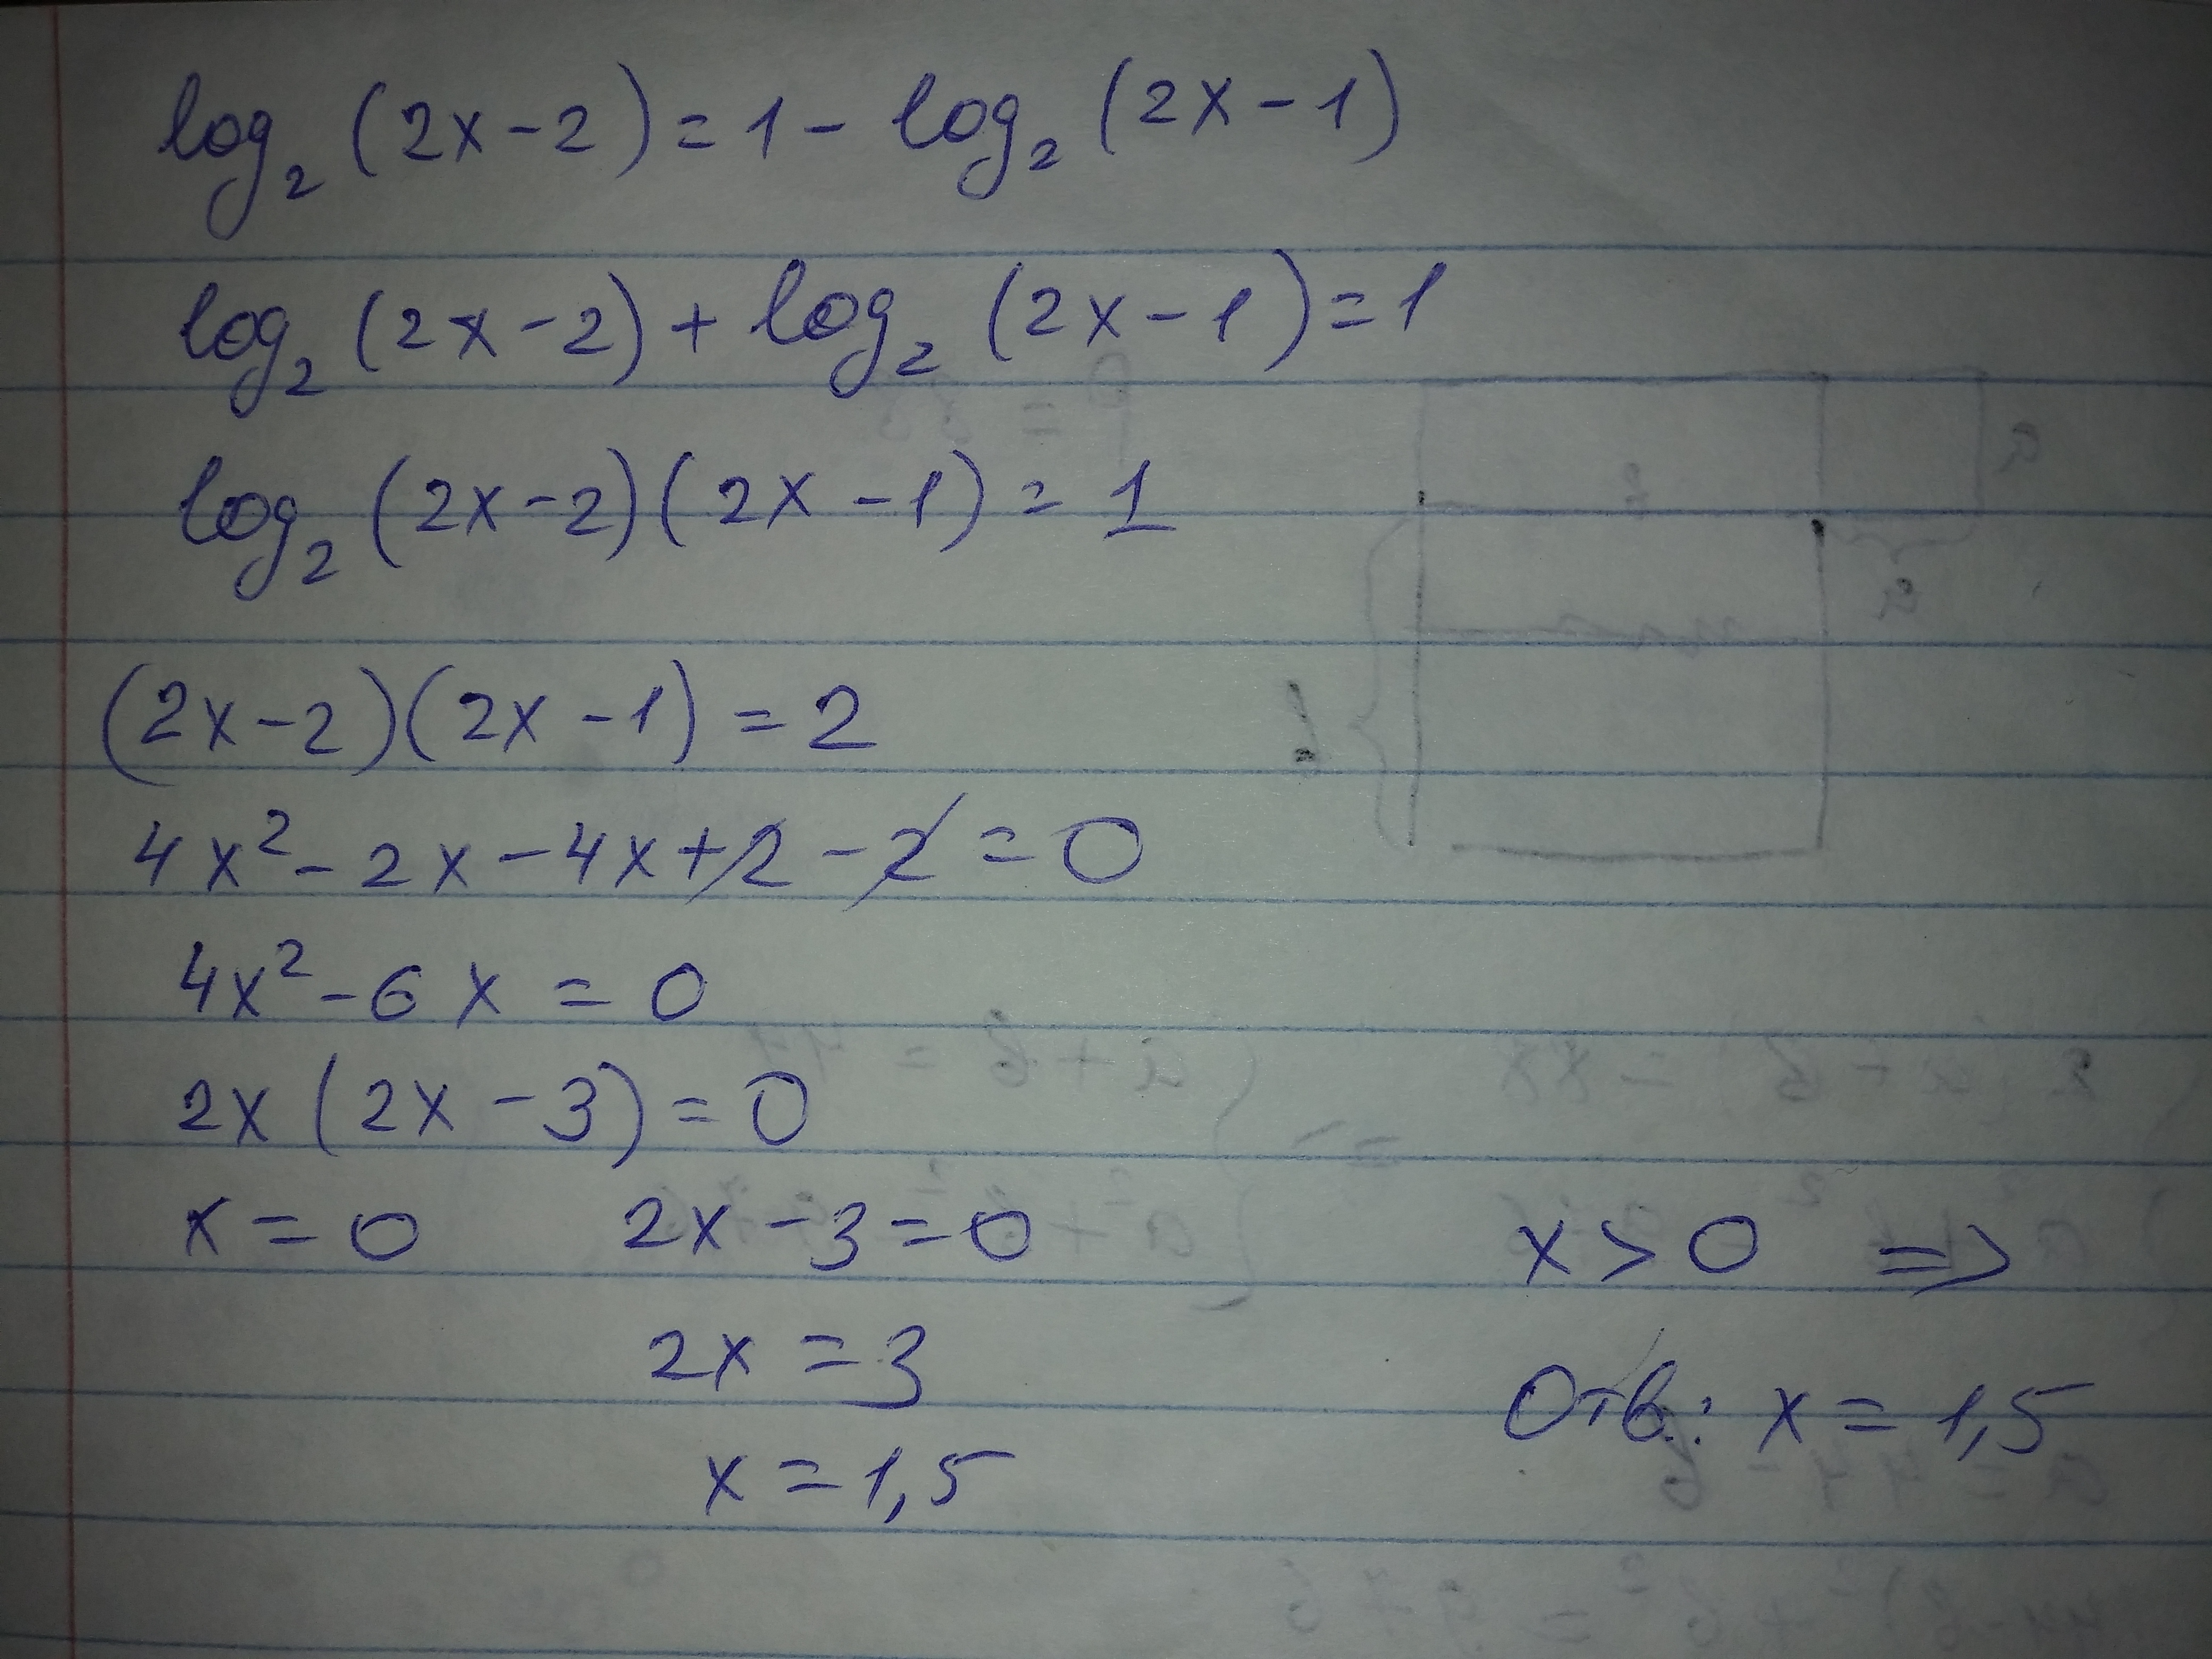 log₂ (2x-2) = 1 - log₂ (2x-1)
log₂ (2x-2) + log₂ (2x-1) = 1
log₂ (2x-2)(2x-1) = 1
(2x-2)(2x-1) = 2
4x² - 2x - 4x + 2 - 2 = 0
4x² - 6x = 0
2x (2x - 3) = 0
x = 0 2x - 3 = 0 x > 0 =>
2x = 3
Отв.: x = 1,5
x = 1,5